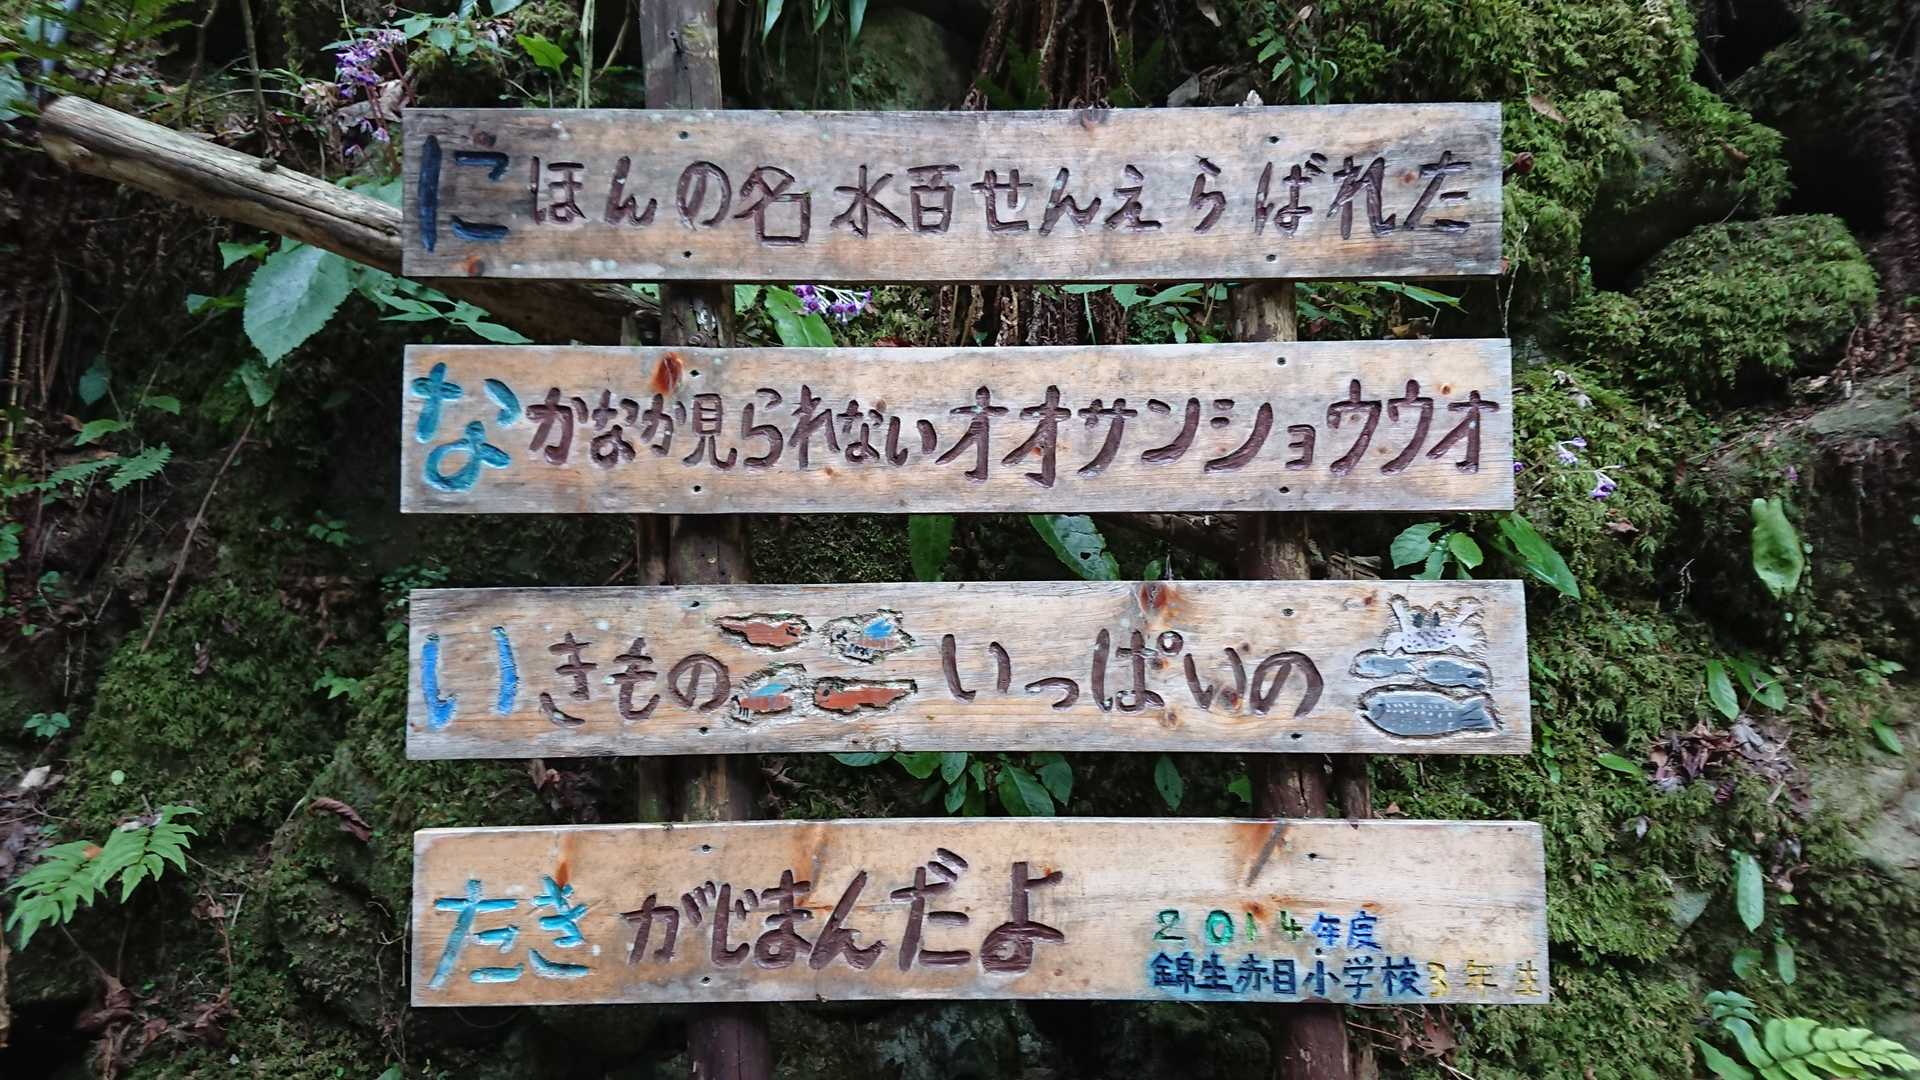 にほんの名水百せんえらばれた
なかなか見られないオオサンショウウオ
いきものいっぱいの
たきがじまんだよ
2014年度
錦生赤目小学校3年生